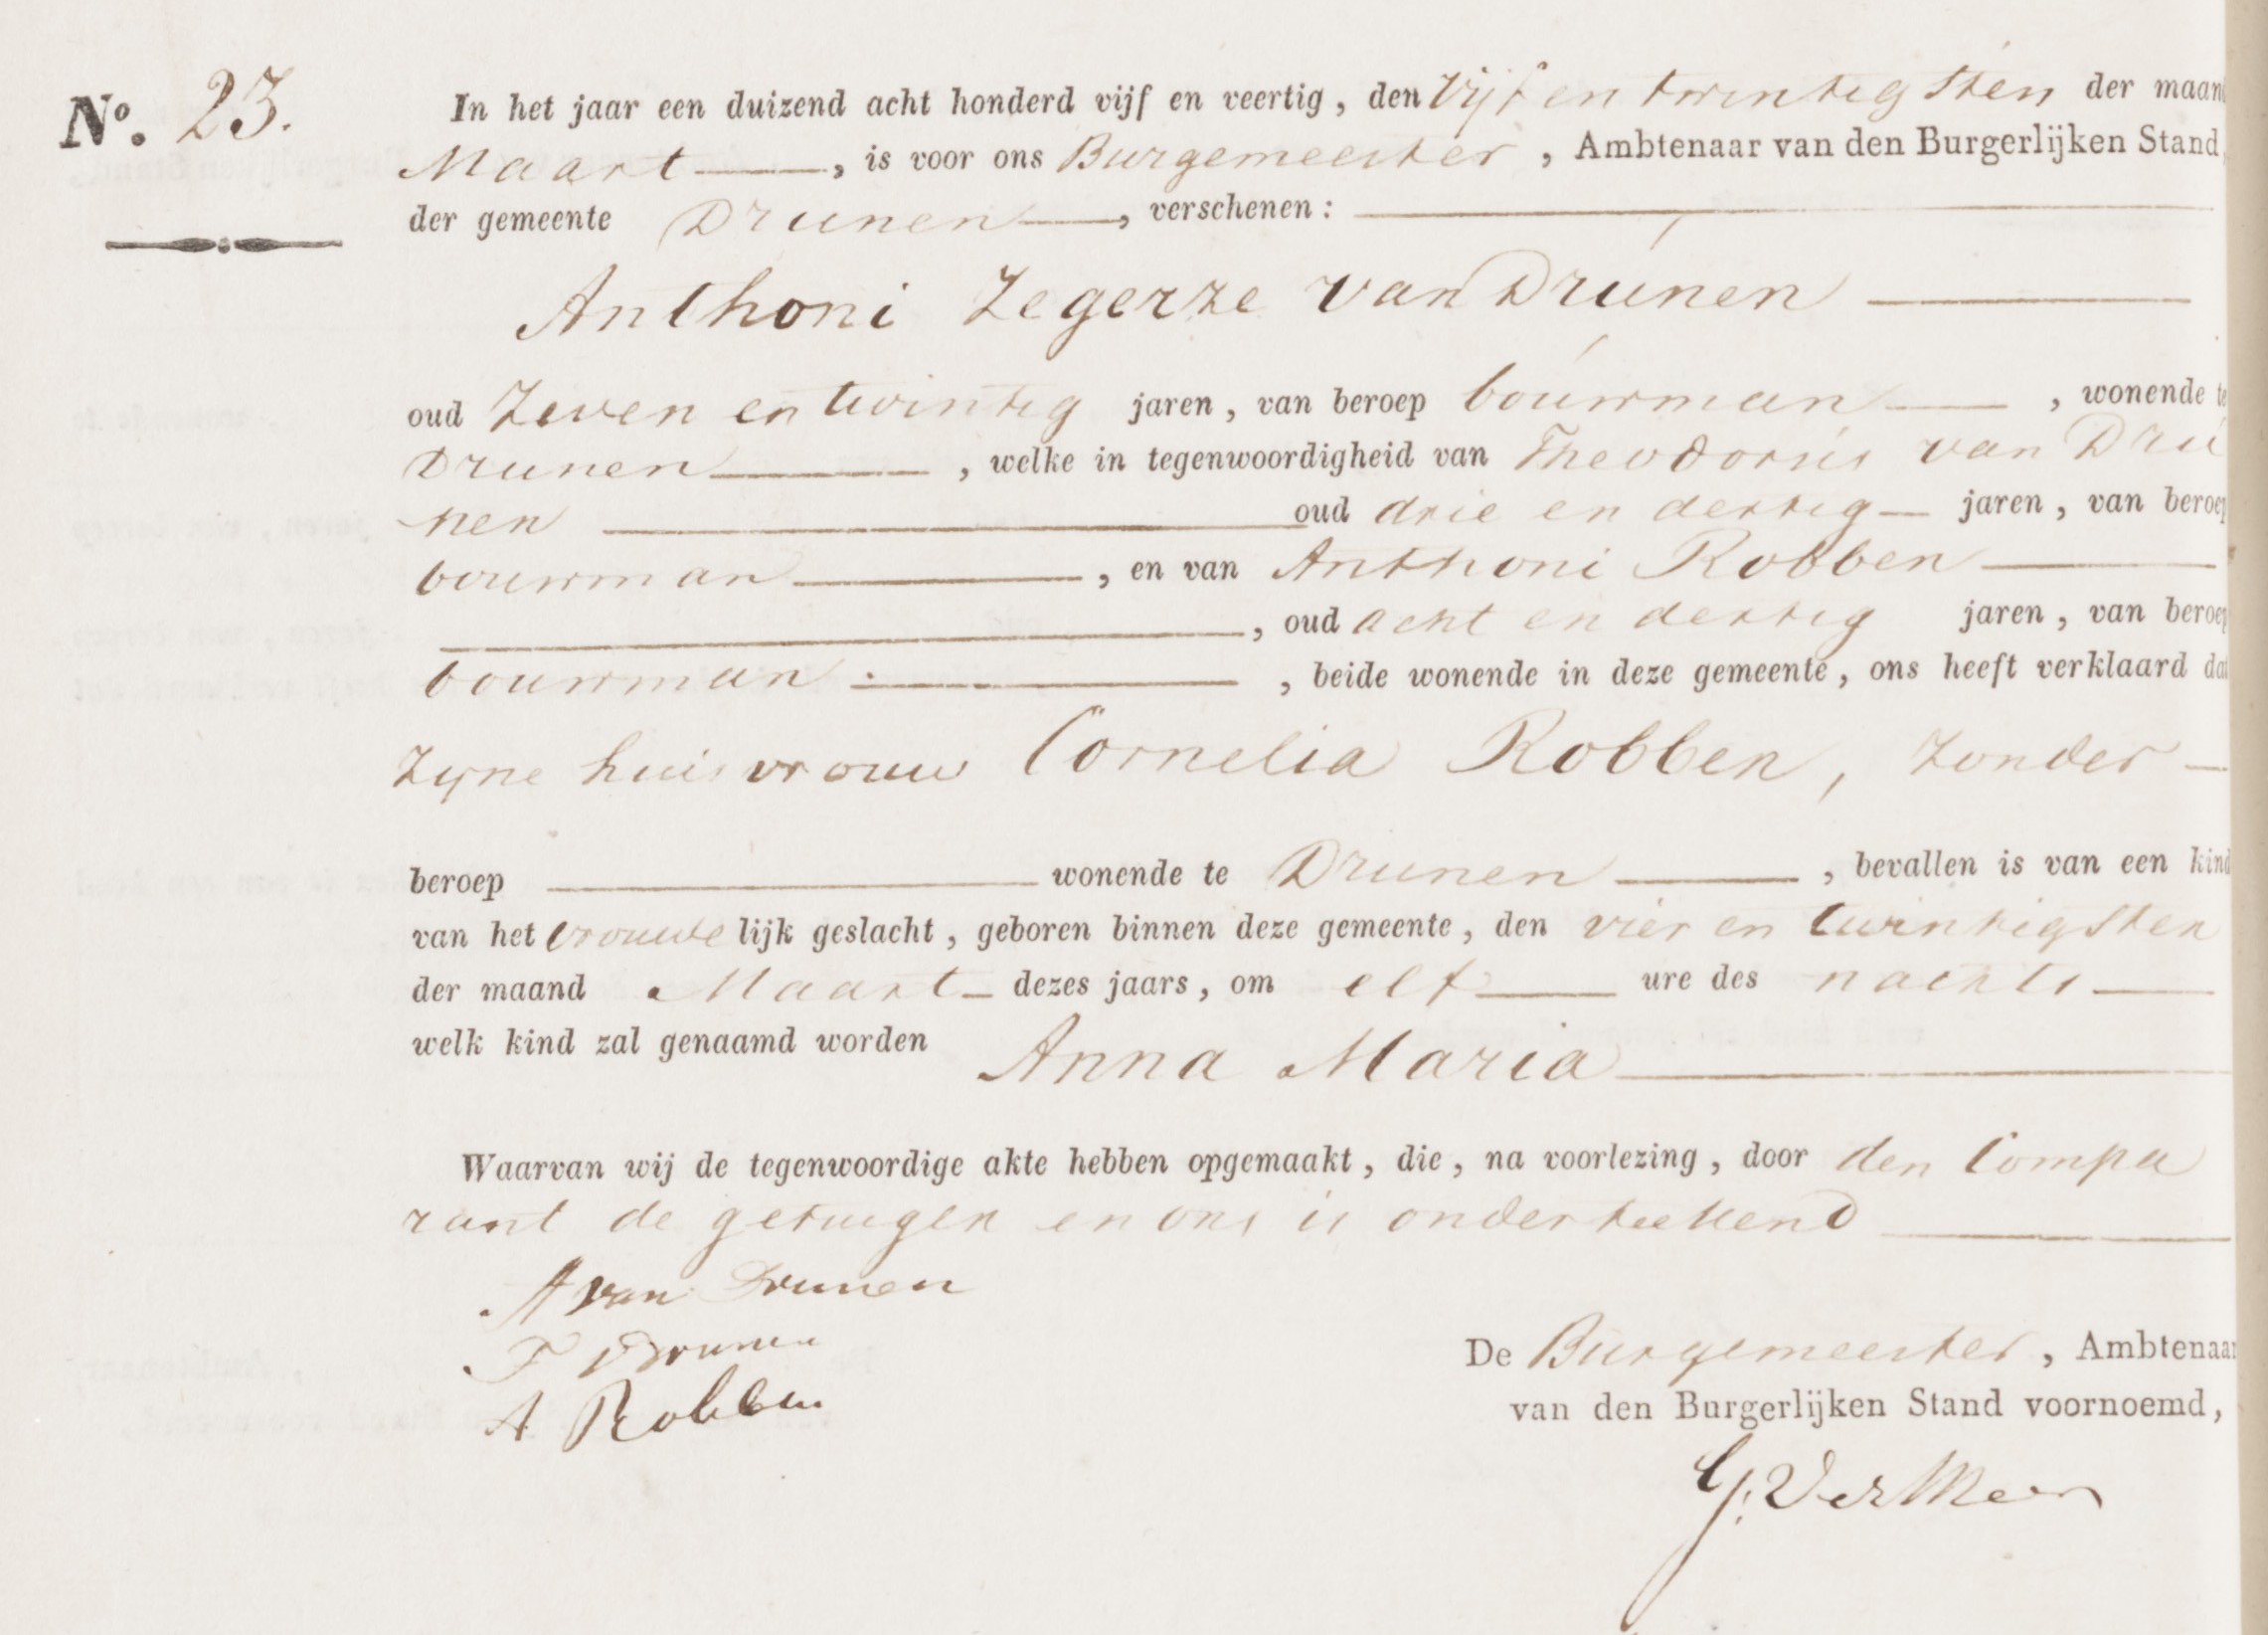 No. 23.
In het jaar een duizend acht honderd vijf en veertig, den Vijf en twintigsten der maand
Maart, is voor ons Burgemeester, Ambtenaar van den Burgerlijken Stand,
der gemeente Drunen, verschenen:
Anthoni Zegerze van Drunen
oud Zeven en twintig jaren, van beroep bouwman, wonende te
Drunen, welke in tegenwoordigheid van Theodorus van Dru
nen oud drie en dertig jaren, van beroep
bouwman, en van Anthoni Robben
, oud acht en dertig jaren, van beroep
bouwman, beide wonende in deze gemeente, ons heeft verklaard dat
Zyne huisvrouw Cornelia Robben, Zonder
beroep wonende te Drunen, bevallen is van een kind
van het vrouwelijk geslacht, geboren binnen deze gemeente, den vier en twintigsten
der maand Maart dezes jaars, om elf ure des nachts
welk kind zal genaamd worden Anna Maria
Waarvan wij de tegenwoordige akte hebben opgemaakt, die, na voorlezing, door den Compa
rant de getuigen en ons is onderteekend
A van Drunen
T v Drunen
A Robben
De Burgemeester, Ambtenaar
van den Burgerlijken Stand voornoemd,